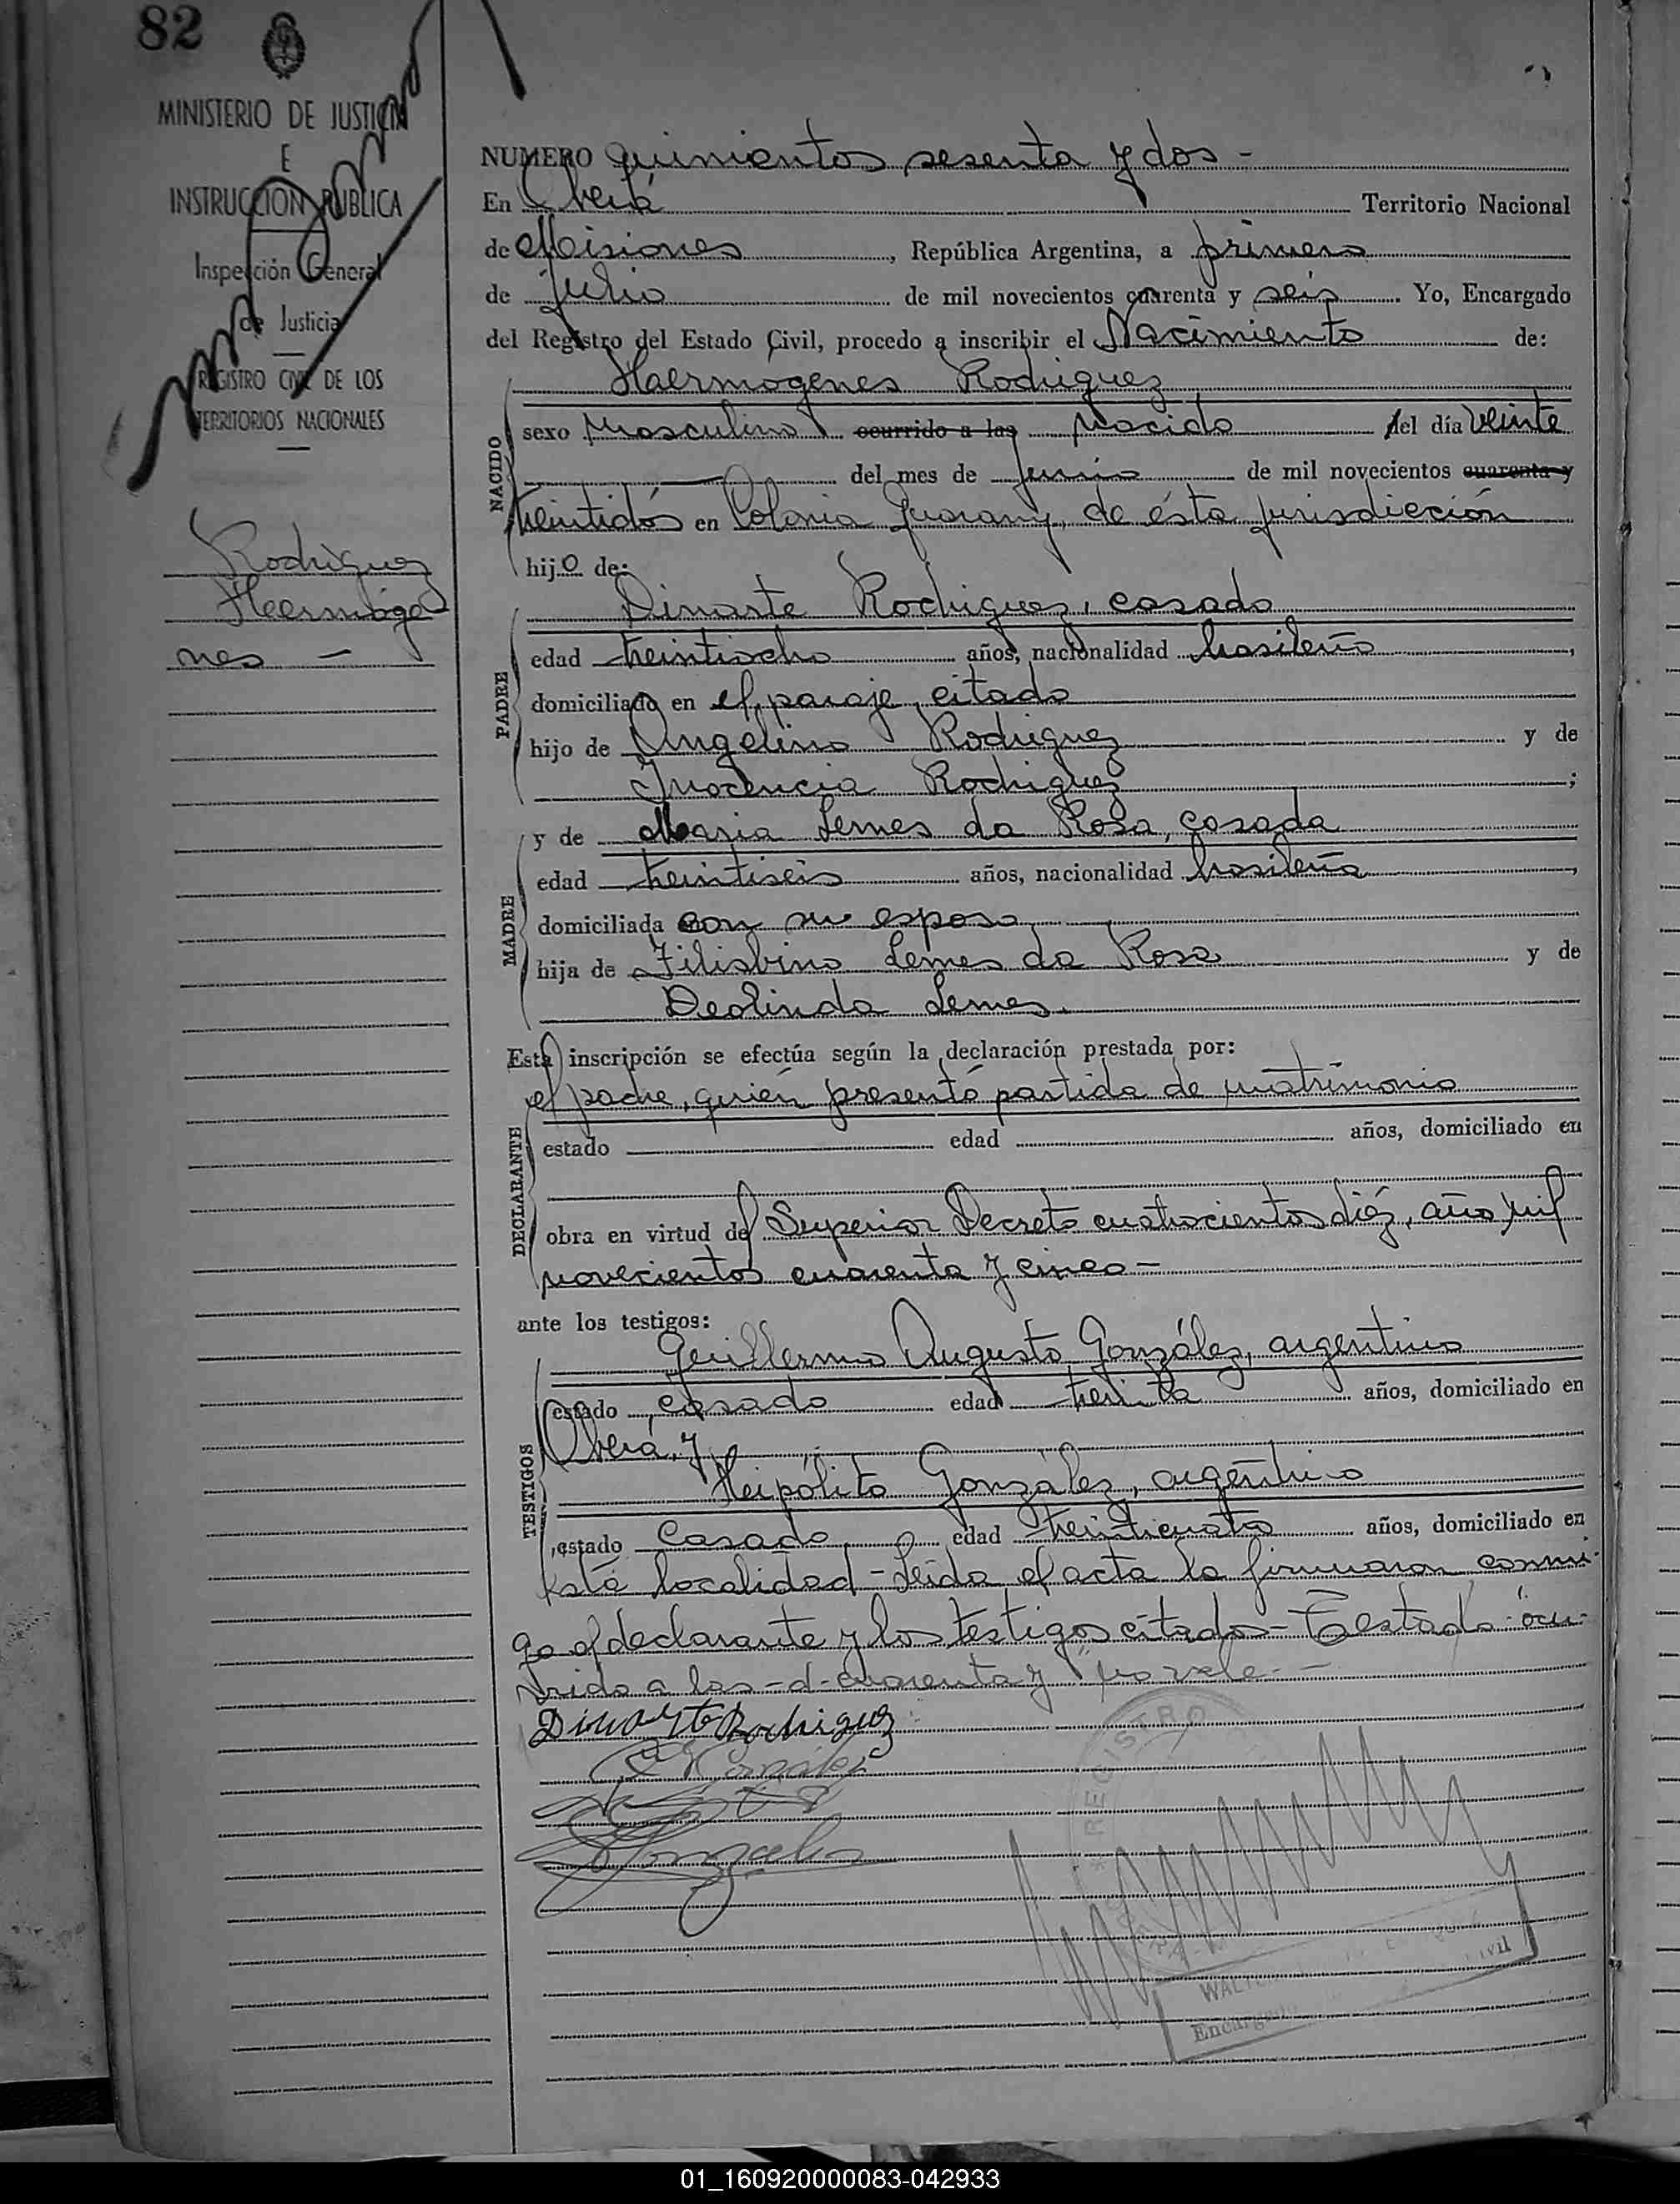 82
MINISTERIO DE JUSTICIA
E
INSTRUCCION PUBLICA
Inspección General
de Justicia
REGISTRO CIVIL DE LOS
TERRITORIOS NACIONALES
Rodriguez
Heermóge
nes -
NUMERO quinientos sesenta y dos -
En Oberá Territorio Nacional
de Misiones, República Argentina, a primero
de Julio de mil novecientos cuarenta y seis. Yo, Encargado
del Registro del Estado Civil, procedo a inscribir el Nacimiento de:
Haermogenes Rodriguez
NACIDO
sexo Masculino ocurrido a las nacido del día veinte
del mes de Junio de mil novecientos cuarenta y
treintidós en Colonia Guarany, de ésta jurisdicción
hijo de:
PADRE
Dinarte Rodriguez, casado
edad treintiocho años, nacionalidad brasileño,
domiciliado en el paraje citado
hijo de Angelino Rodriguez y de
Inocencia Rodriguez;
MADRE
y de Maria Lemes da Rosa, casada
edad treintiseis años, nacionalidad brasileña,
domiciliada con su esposo
hija de Filisbino Lemes da Rosa y de
Deolinda Lemes.
Esta inscripción se efectúa según la declaración prestada por:
DECLARANTE
el padre, quién presentó partida de matrimonio
estado edad años, domiciliado en
obra en virtud del Superior Decreto cuatrocientos diéz, año mil
novecientos cuarenta y cinco -
ante los testigos:
TESTIGOS
Guillermo Augusto González, argentino
estado casado edad treinta años, domiciliado en
Oberá, y
Heipólito González, argentino
estado Casado edad treinticuatro años, domiciliado en
ésta localidad - Leída el acta la firmaron conmi-
go el declarante y los testigos citados - Testado: ocu-
rrido a las - d - cuarenta y "no vale. -
Dinarte Rodriguez
González
González
REGISTRO
WALT
Encargado
Civil
01_160920000083-042933